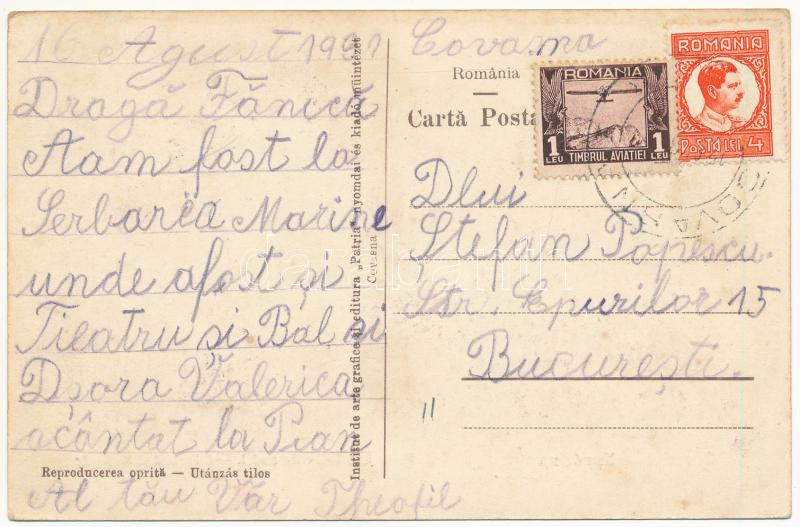 16 Agust 1931
Dragă Fănică
Aam fost la
Serbarea Marine
unde afost și
Tieatru si Bal si
Dșora Valerica
acântat la Pian
Reproducerea oprită — Utánzás tilos
Al tău Văr Theofil
Institut de arte grafice și editura „Patria" nyomdai és kiadó műintézet
Covasna
Covasna
România
Carta Posta
ROMANIA
1 LEU TIMBRUL AVIATIEI 1 LEU
ROMANIA
POSTA LEI 4
COVASN
Dlui
Stefan Popescu.
Str. Epurilor 15
București.
11
darabanth